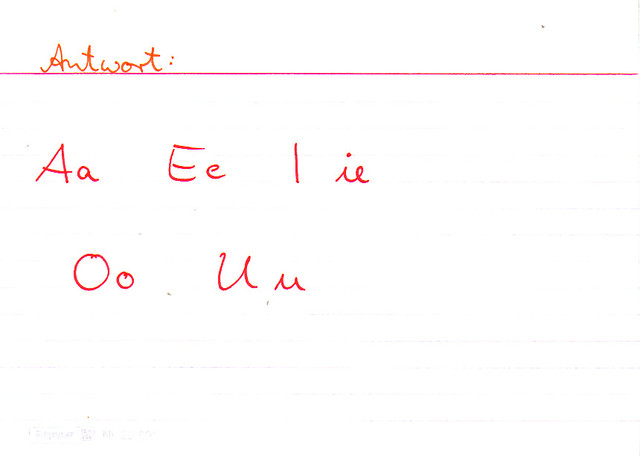 Antwort:
Aa Ee I ie
Oo Uu